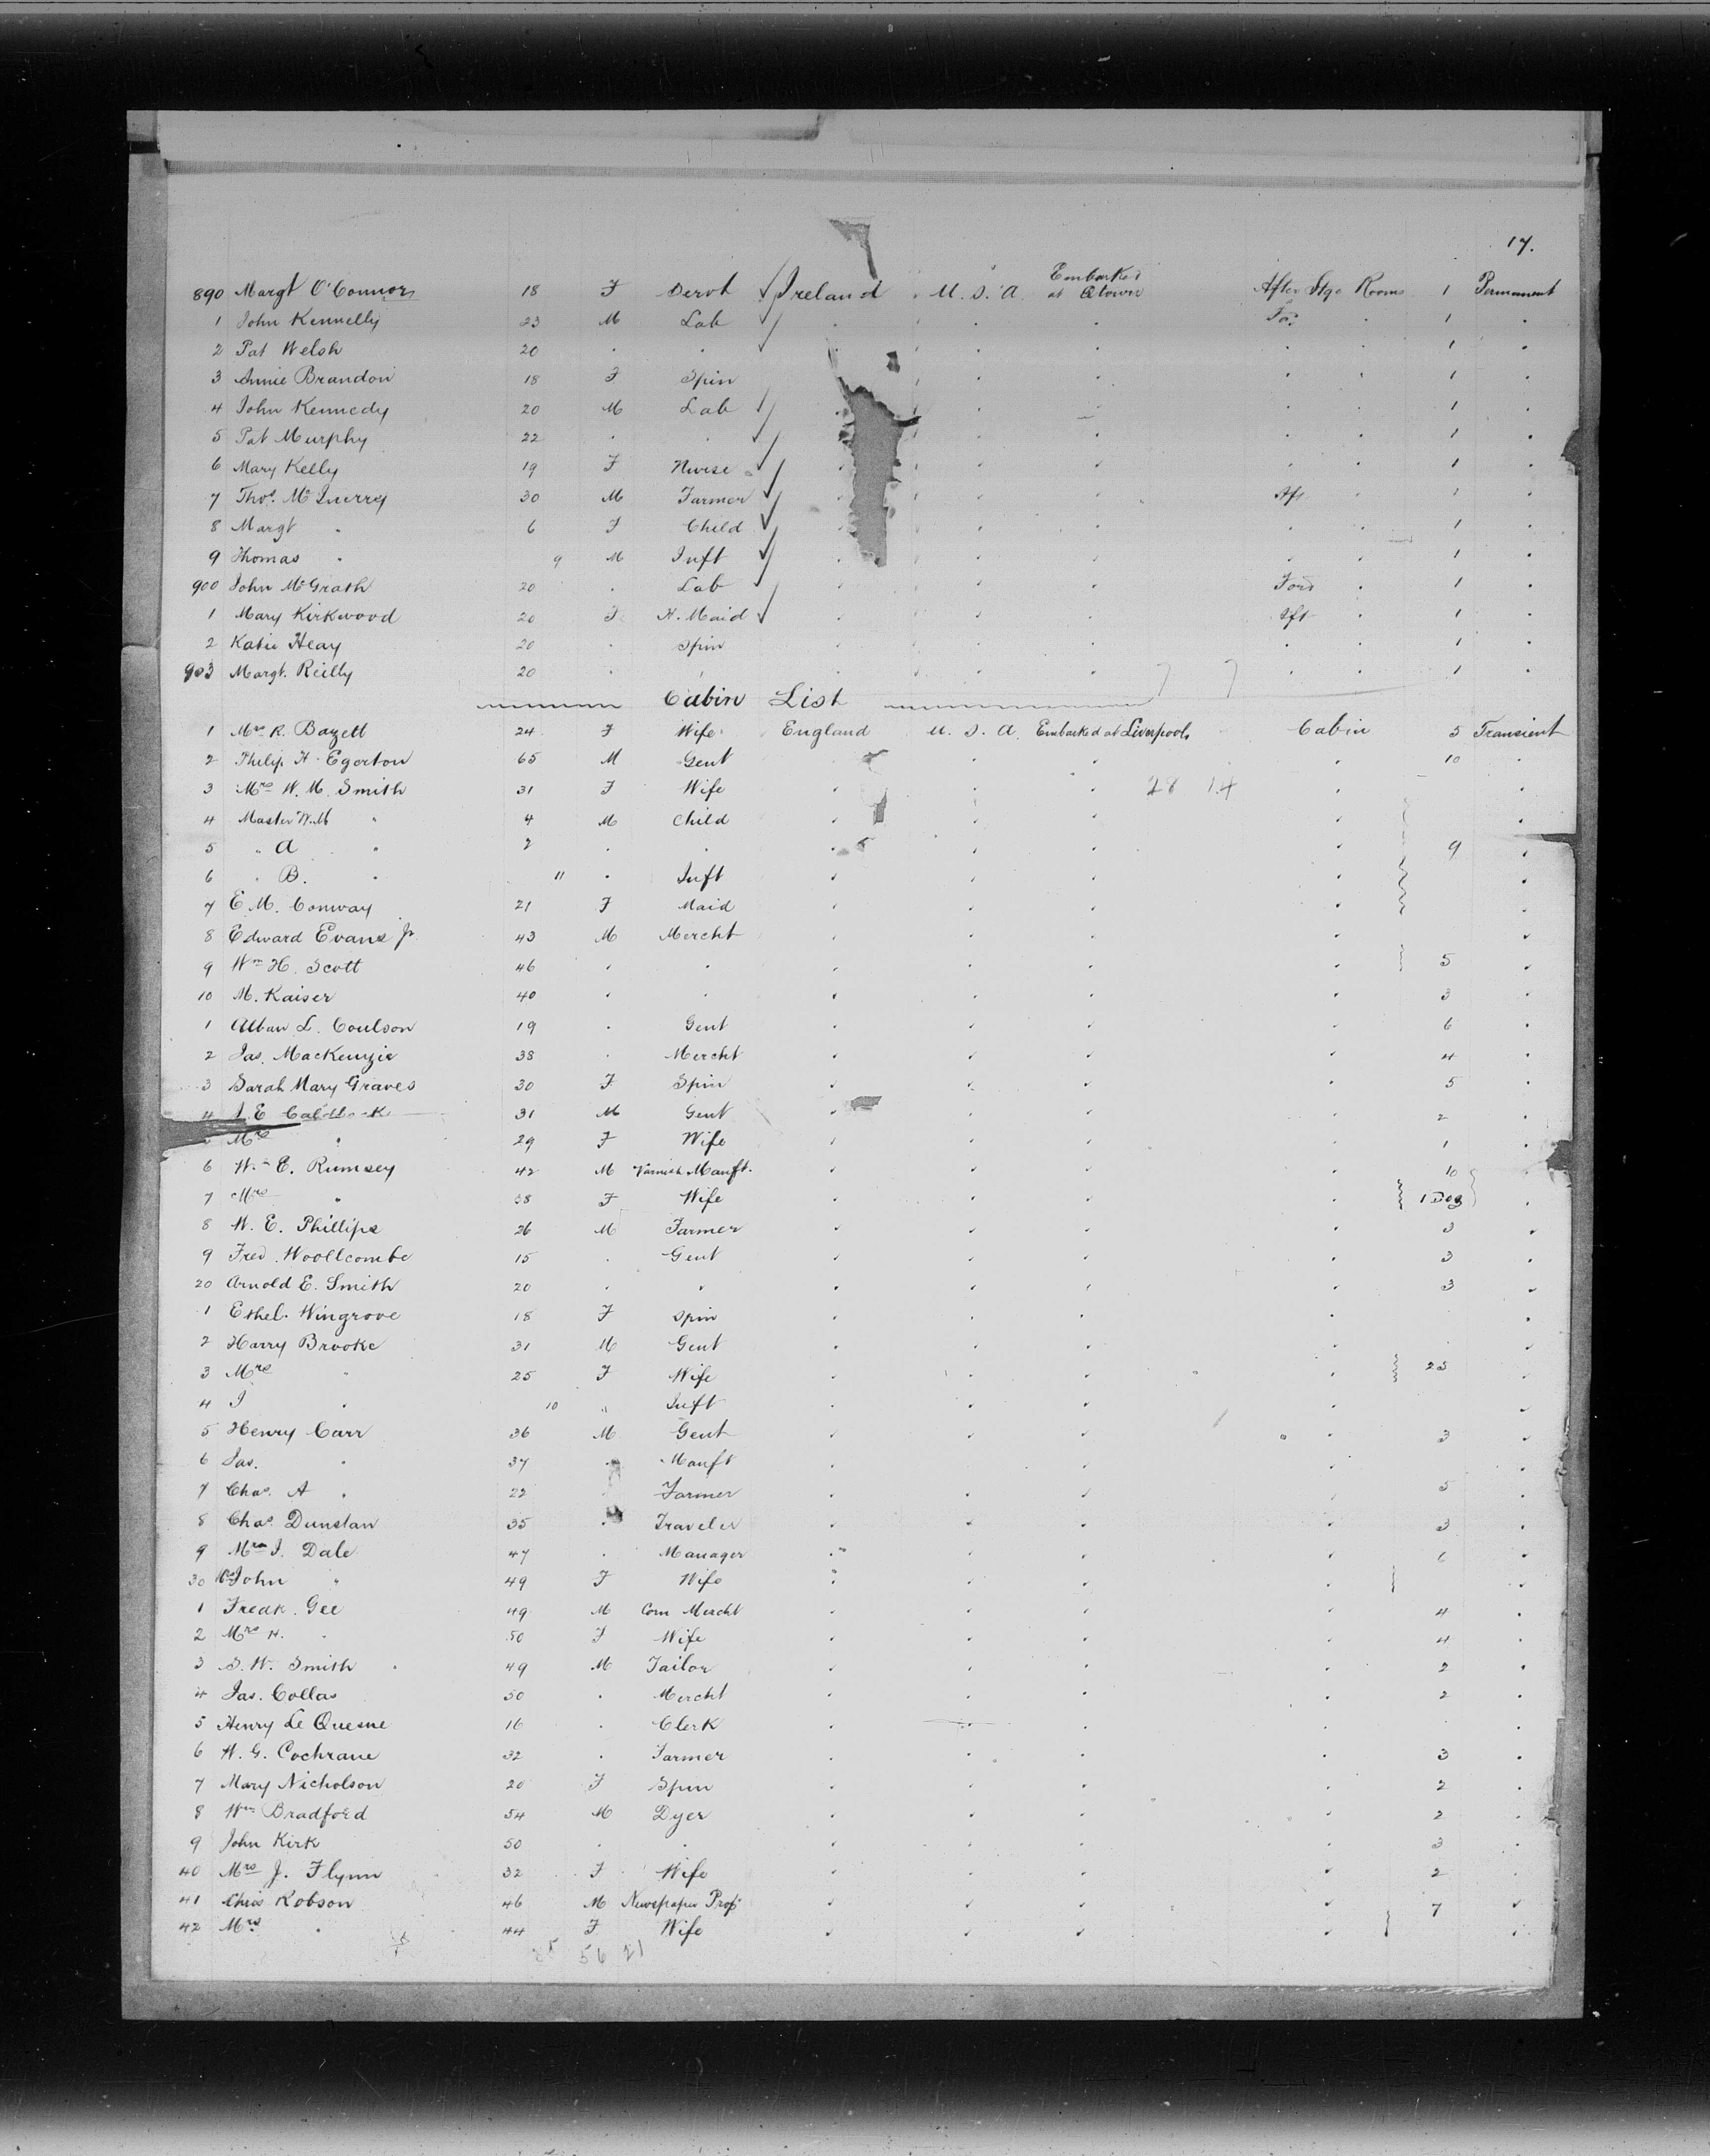 17.
890 Margt O'Connor 18 F Servt Ireland U.S.A. Embarked at Qtown After Stge Rooms 1 Permanent
1 John Kennelly 23 M Lab " " " For " 1 "
2 Pat Welsh 20 " " " " " " " 1 "
3 Annie Brandon 18 F Spin " " " " 1 "
4 John Kennedy 20 M Lab " " " " 1 "
5 Pat Murphy 22 " " " " " " 1 "
6 Mary Kelly 19 F Nurse " " " " " 1 "
7 Thos. McInerry 30 M Farmer " " " Aft " 1 "
8 Margt " 6 F Child " " " " " 1 "
9 Thomas " 9 M Inft " " " " " 1 "
900 John McGrath 20 " Lab " " " Ford " 1 "
1 Mary Kirkwood 20 F H. Maid " " " Aft " 1 "
2 Katie Heay 20 " Spin " " " " " 1 "
903 Margt. Reilly 20 " " " " " " " 1 "
Cabin List
1 Mrs R. Bazett 24 F Wife England U.S.A. Embarked at Liverpool Cabin 5 Transient
2 Philip H. Egerton 65 M Gent " " " 10 "
3 Mrs W. M. Smith 31 F Wife " " " 28 14 " "
4 Master W.M " 4 M Child " " " " "
5 " A " 2 " " " " " " 9 "
6 " B. " 11 " Inft " " " " "
7 E. M. Conway 21 F Maid " " " " "
8 Edward Evans Jr. 43 M Mercht " " " " "
9 Wm H. Scott 46 " " " " " " 5 "
10 M. Kaiser 40 " " " " " " 3 "
1 Alban L. Coulson 19 " Gent " " " " 6 "
2 Jas. MacKenzie 38 " Mercht " " " " 4 "
3 Sarah Mary Graves 30 F Spin " " " " 5 "
4 31 M Gent " " " " 2 "
Mrs " 29 F Wife " " " " 1 "
6 W. E. Rumsey 42 M Varnish Manft. " " " " 10
7 Mrs " 38 F Wife " " " " 1 Dog "
8 W. E. Phillips 26 M Farmer " " " " 3 "
9 Fred. Woollcombe 15 " Gent " " " " 3 "
20 Arnold E. Smith 20 " " " " " " 3 "
1 Ethel. Wingrove 18 F Spin " " " " "
2 Harry Brooke 31 M Gent " " " " "
3 Mrs " 25 F Wife " " " " 25 "
4 I " 10 " Inft " " " " "
5 Henry Carr 36 M Gent " " " " 3 "
6 Jas. " 37 " Manft " " " "
7 Chas. A " 22 Farmer " " " " 5 "
8 Chas. Dunstan 35 " Traveler " " " " 3 "
9 Mrs J. Dale 47 " Manager " " " " 6 "
30 John " 49 F Wife " " " " "
1 Fredk. Gee 49 M Corn Mercht " " " " 4 "
2 Mrs H. " 50 F Wife " " " " 4 "
3 S. W. Smith 49 M Tailor " " " " 2 "
4 Jas. Collas 50 " Mercht " " " " 2 "
5 Henry Le Quesne 16 " Clerk " " " " "
6 H. G. Cochrane 32 " Farmer " " " " 3 "
7 Mary Nicholson 20 F Spin " " " " 2 "
8 Wm Bradford 54 M Dyer " " " " 2 "
9 John Kirk 50 " " " " " " 3 "
40 Mrs J. Flynn 32 F Wife " " " " 2 "
41 Chris Robson 46 M Newspaper Prop " " " " 7 "
42 Mrs " 44 F Wife " " " " "
56 21